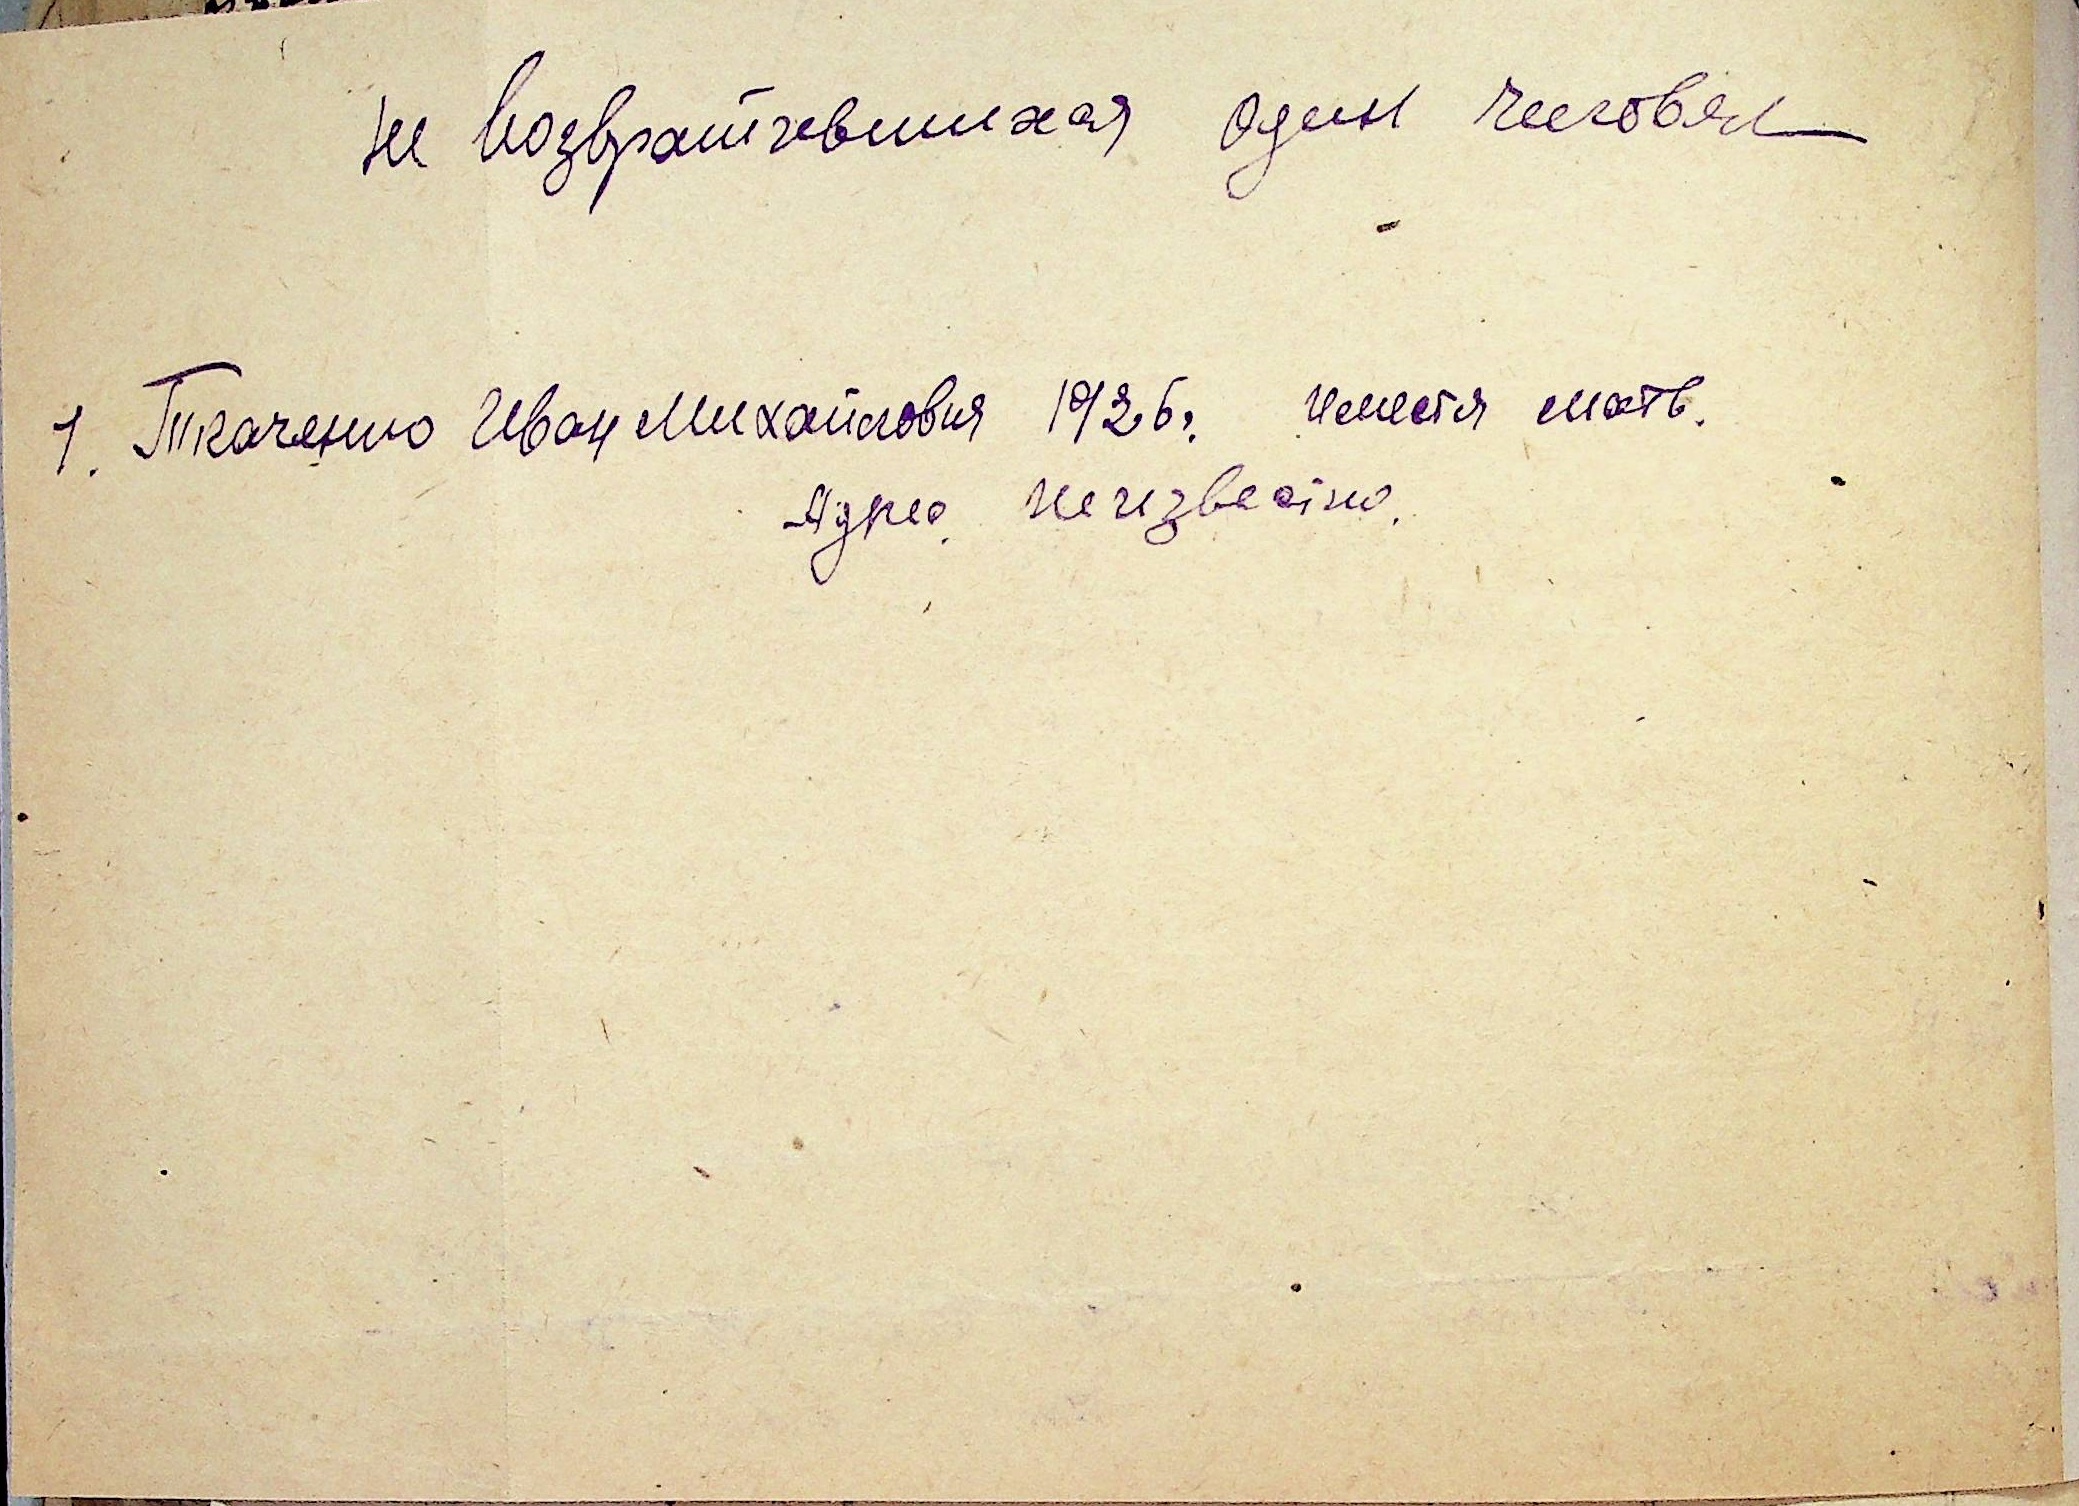 не возвратившихся один человек
1. Ткаченко Иван Михайлович 1926г. имеется мать.
Адрес неизвестно.